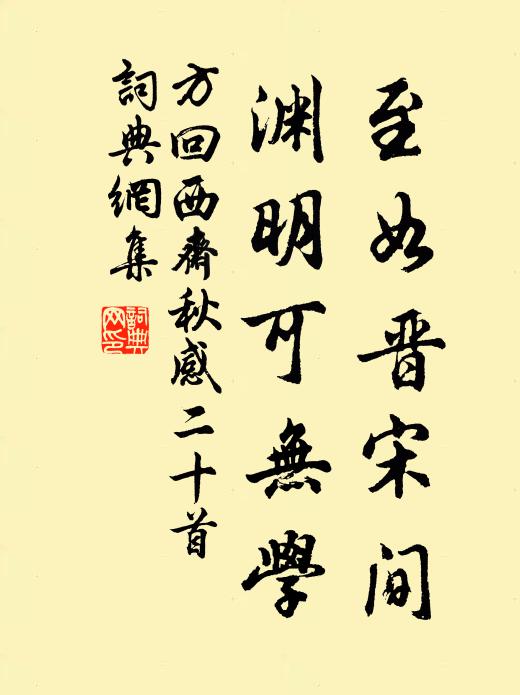 至如晋宋间
渊明可無學
方回西齋秋感二十首
詞典網集
詞典网印